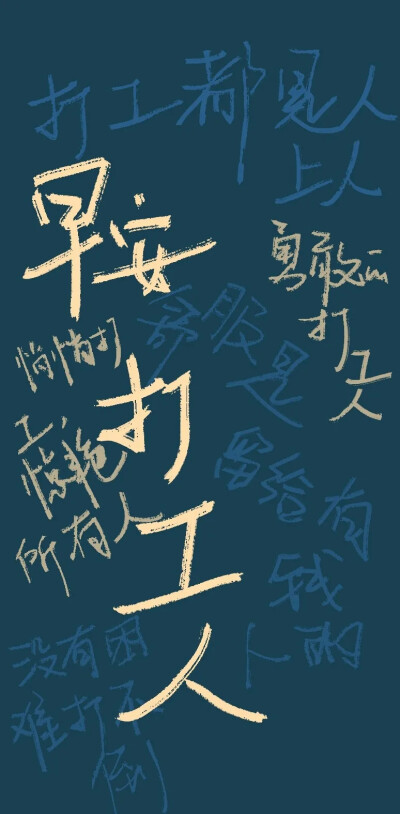 打工都是人
上人
早安
打
工
人
勇敢的
打
工
人
悄悄打
工,惊艳
所有人
舒服
是
留给有
钱
人的
没有困
难打不
倒